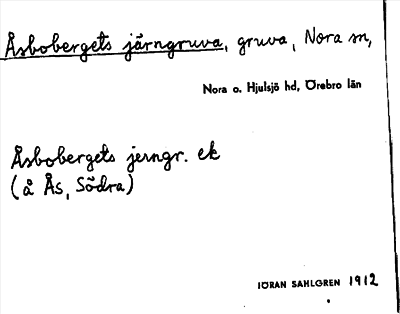 Åsbobergets järngruva, gruva, Nora sn,
Nora o. Hjulsjö hd, Örebro län
Åsbobergets jerngr. ek
(å Ås, Södra)
JÖRAN SAHLGREN 1912